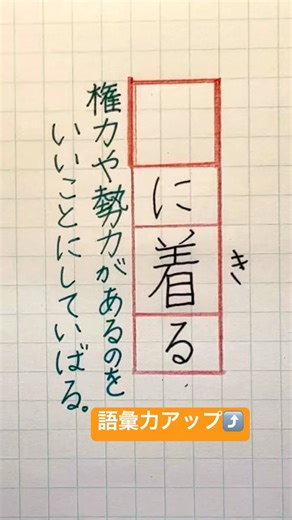 に着る
き
権力や勢力があるのを
いいことにしていばる。
語彙力アップ⤴